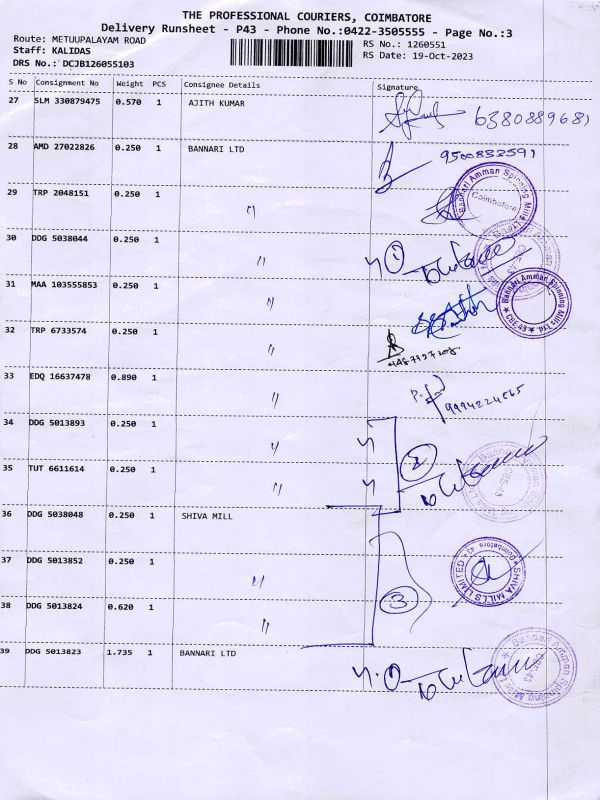 THE PROFESSIONAL COURIERS, COIMBATORE
Delivery Runsheet - P43 - Phone No.:0422-3505555 - Page No.:3
Route: METUUPALAYAM ROAD
RS No.: 1260551
Staff: KALIDAS
RS Date: 19-Oct-2023
DRS No.: DCJB126055103
S No Consignment No Weight PCS Consignee Details Signature
27 SLM 330879475 0.570 1 AJITH KUMAR
28 AMD 27022826 0.250 1 BANNARI LTD
9500833591
29 TRP 2048151 0.250 1 "
Bannari Amman Spinning Mills Ltd
Coimbatore
30 DDG 5038044 0.250 1 " 1
31 MAA 103555853 0.250 1 "
Bannari Amman Spinning Mills Ltd
CBE-43
32 TRP 6733574 0.250 1 "
33 EDQ 16637478 0.890 1 "
34 DDG 5013893 0.250 1 "
2
35 TUT 6611614 0.250 1 "
36 DDG 5038048 0.250 1 SHIVA MILL
37 DDG 5013852 0.250 1 "
SHIVA MILLS LIMITED
Coimbatore 43
38 DDG 5013824 0.620 1 " 3
39 DDG 5013823 1.735 1 BANNARI LTD
Bannari Amman Spinning Mills
CBE-43